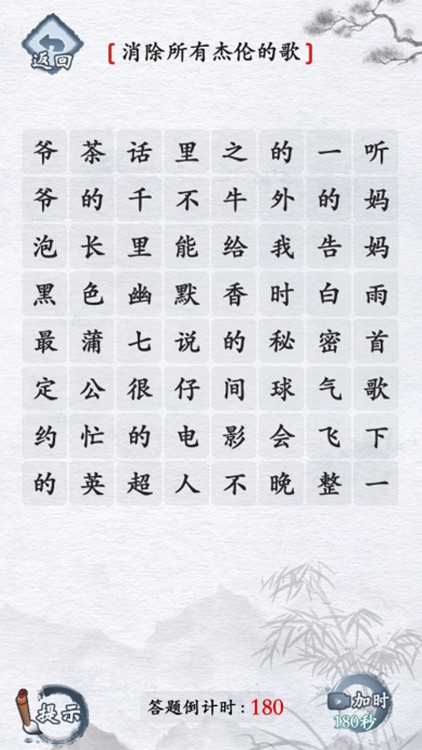 返回
[消除所有杰伦的歌]
爷茶话里之的一听
爷的千不牛外的妈
泡长里能给我告妈
黑色幽默香时白雨
最蒲七说的秘密首
定公很仔间球气歌
约忙的电影会飞下
的英超人不晚整一
提示
答题倒计时:180
加时
180秒